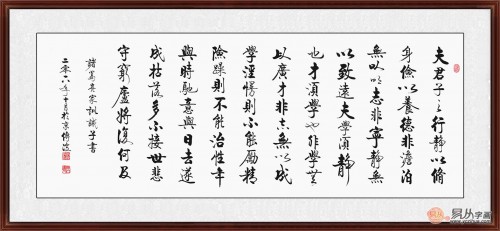 夫君子之行静以脩
身儉以養德非澹泊
無以明志非寧静無
以致遠夫學須静
也才須學也非學無
以廣才非志無以成
學淫慢則不能勵精
險躁則不能治性年
與時馳意與日去遂
成枯落多不接世悲
守窮廬將復何及
諸葛亮家訓誡子書
二零一八年十月於京
易从字画
www.yczihua.com